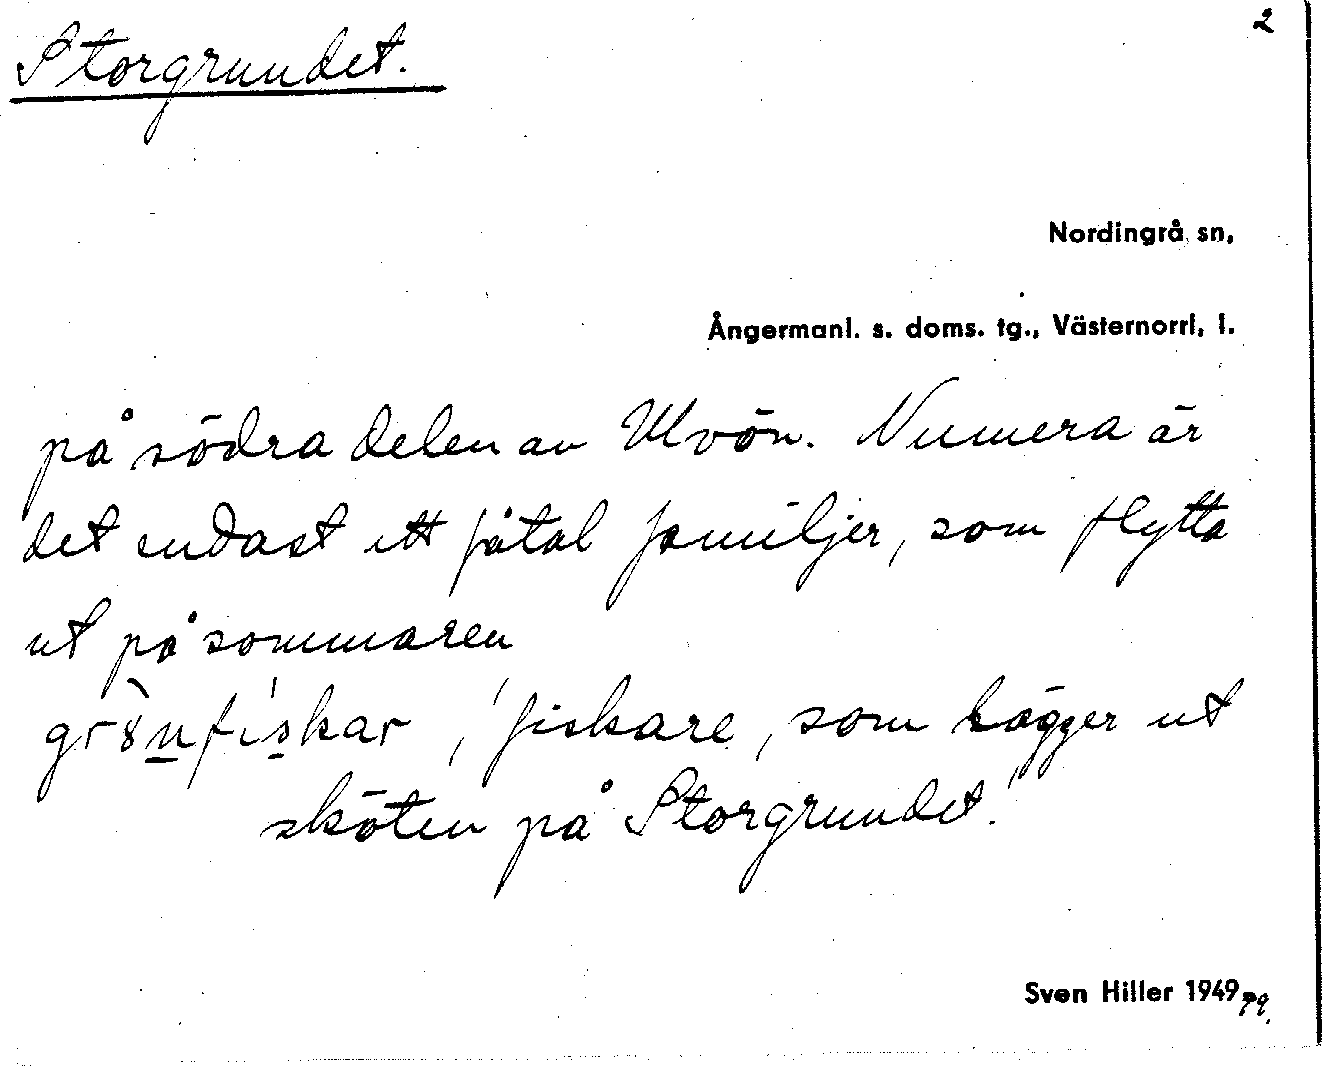 2
Storgrundet.
Nordingrå sn,
Ångermanl. s. doms. tg., Västernorrl. l.
på södra delen av Ulvön. Numera är
det endast ett fåtal familjer, som flytta
ut på sommaren
grȣ̀nfískar, 'fiskare, som lägger ut
sköten på Storgrundet.'
Sven Hiller 1949